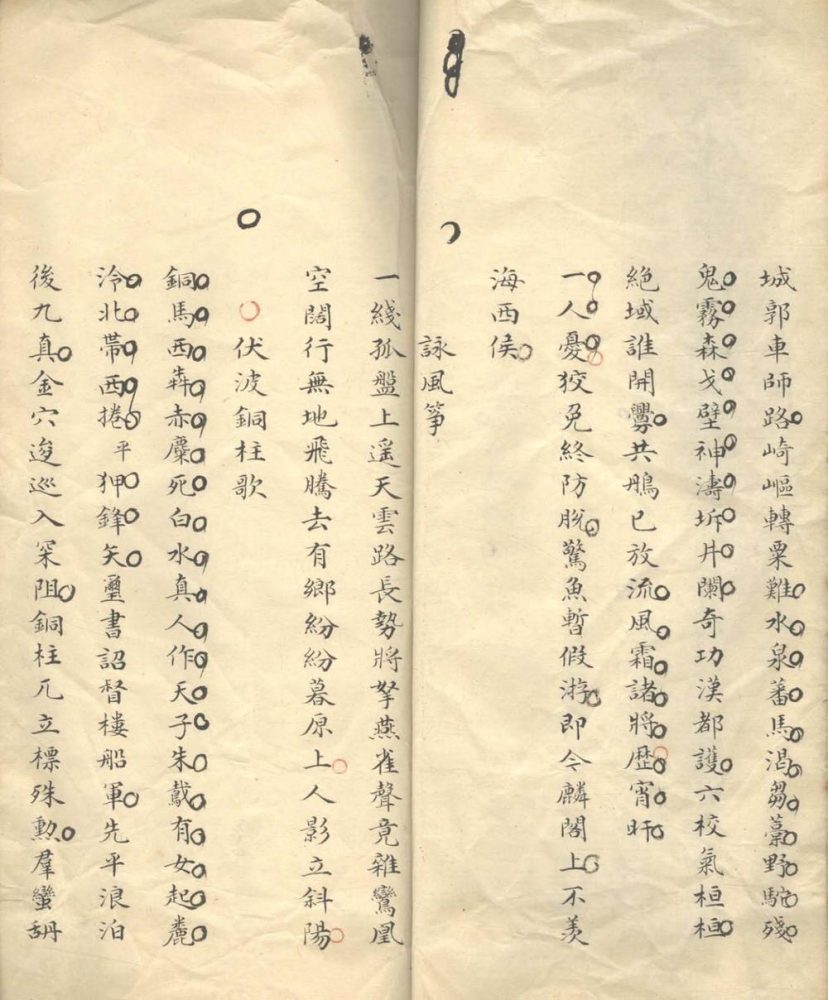 城郭車師路崎嶇轉粟難水泉蕃馬渴芻藁野駝殘
鬼霧森戈壁神濤坼井闌奇功漢都護六校氣桓桓
絕域誰開釁共鵰已放流風霜諸將歷宵旰
一人憂狡兔終防脫驚魚暫假游即令麟閣上不羨
海西侯
詠風箏
一綫孤盤上遥天雲路長勢將拏燕雀聲竟雜鸞凰
空闊行無地飛騰去有鄉紛紛暮原上人影立斜陽
伏波銅柱歌
銅馬西犇赤麋死白水真人作天子朱鳶有女起麊
泠北帶西捲平狎鋒矢璽書詔督樓船軍先平浪泊
後九真金穴逡巡入罙阻銅柱兀立標殊勲羣蠻胡